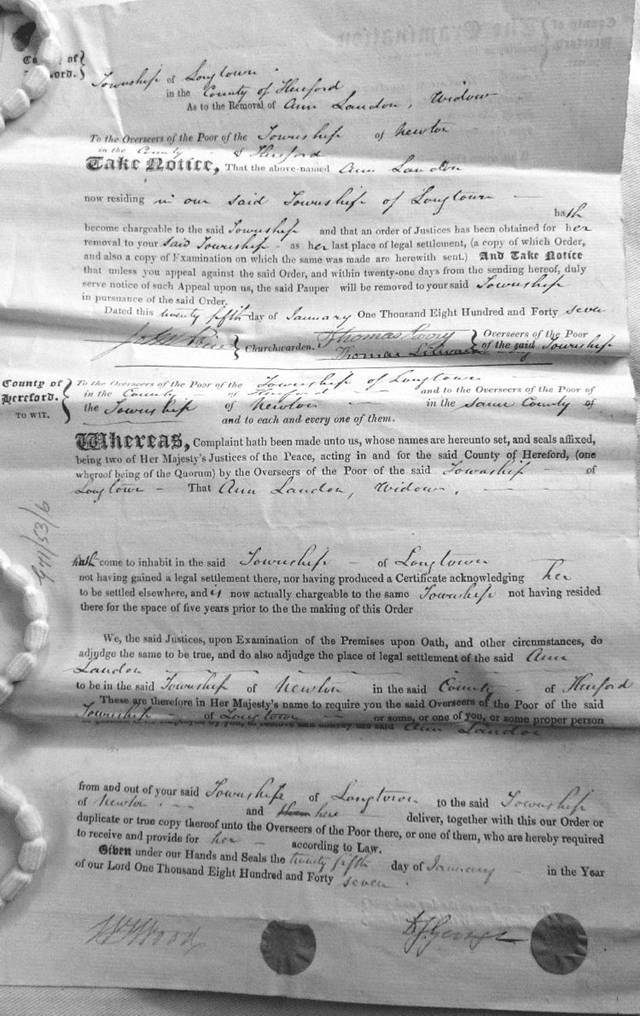 County of
Hereford.
Township of Longtown
in the County of Hereford
As to the Removal of Ann Landon, Widow
To the Overseers of the Poor of the Township of Newton
in the County of Hereford
Take Notice, That the above-named Ann Landon
now residing in our said Township of Longtown
hath
become chargeable to the said Township and that an order of Justices has been obtained for her
removal to your said Township as her last place of legal settlement, (a copy of which Order,
and also a copy of Examination on which the same was made are herewith sent.) And Take Notice
that unless you appeal against the said Order, and within twenty-one days from the sending hereof, duly
serve notice of such Appeal upon us, the said Pauper will be removed to your said Township
in pursuance of the said Order.
Dated this twenty fifth day of January One Thousand Eight Hundred and Forty seven
Churchwarden. Thomas Overseers of the Poor
Thomas of the said Township
County of
Hereford.
TO WIT.
To the Overseers of the Poor of the Township of Longtown
in the County of Hereford and to the Overseers of the Poor of
the Township of Newton in the same County of
and to each and every one of them.
Whereas, Complaint hath been made unto us, whose names are hereunto set, and seals affixed,
being two of Her Majesty's Justices of the Peace, acting in and for the said County of Hereford, (one
whereof being of the Quorum) by the Overseers of the Poor of the said Township of
Longtown That Ann Landon, Widow,
hath come to inhabit in the said Township of Longtown
not having gained a legal settlement there, nor having produced a Certificate acknowledging her
to be settled elsewhere, and is now actually chargeable to the same Township not having resided
there for the space of five years prior to the the making of this Order
We, the said Justices, upon Examination of the Premises upon Oath, and other circumstances, do
adjudge the same to be true, and do also adjudge the place of legal settlement of the said Ann
Landon
to be in the said Township of Newton in the said County of Hereford
These are therefore in Her Majesty's name to require you the said Overseers of the Poor of the said
Township of Longtown or some, or one of you, or some proper person
Ann Landon
from and out of your said Township of Longtown to the said Township
of Newton and here deliver, together with this our Order or
duplicate or true copy thereof unto the Overseers of the Poor there, or one of them, who are hereby required
to receive and provide for her according to Law.
Given under our Hands and Seals the twenty fifth day of January in the Year
of our Lord One Thousand Eight Hundred and Forty seven.
Wood